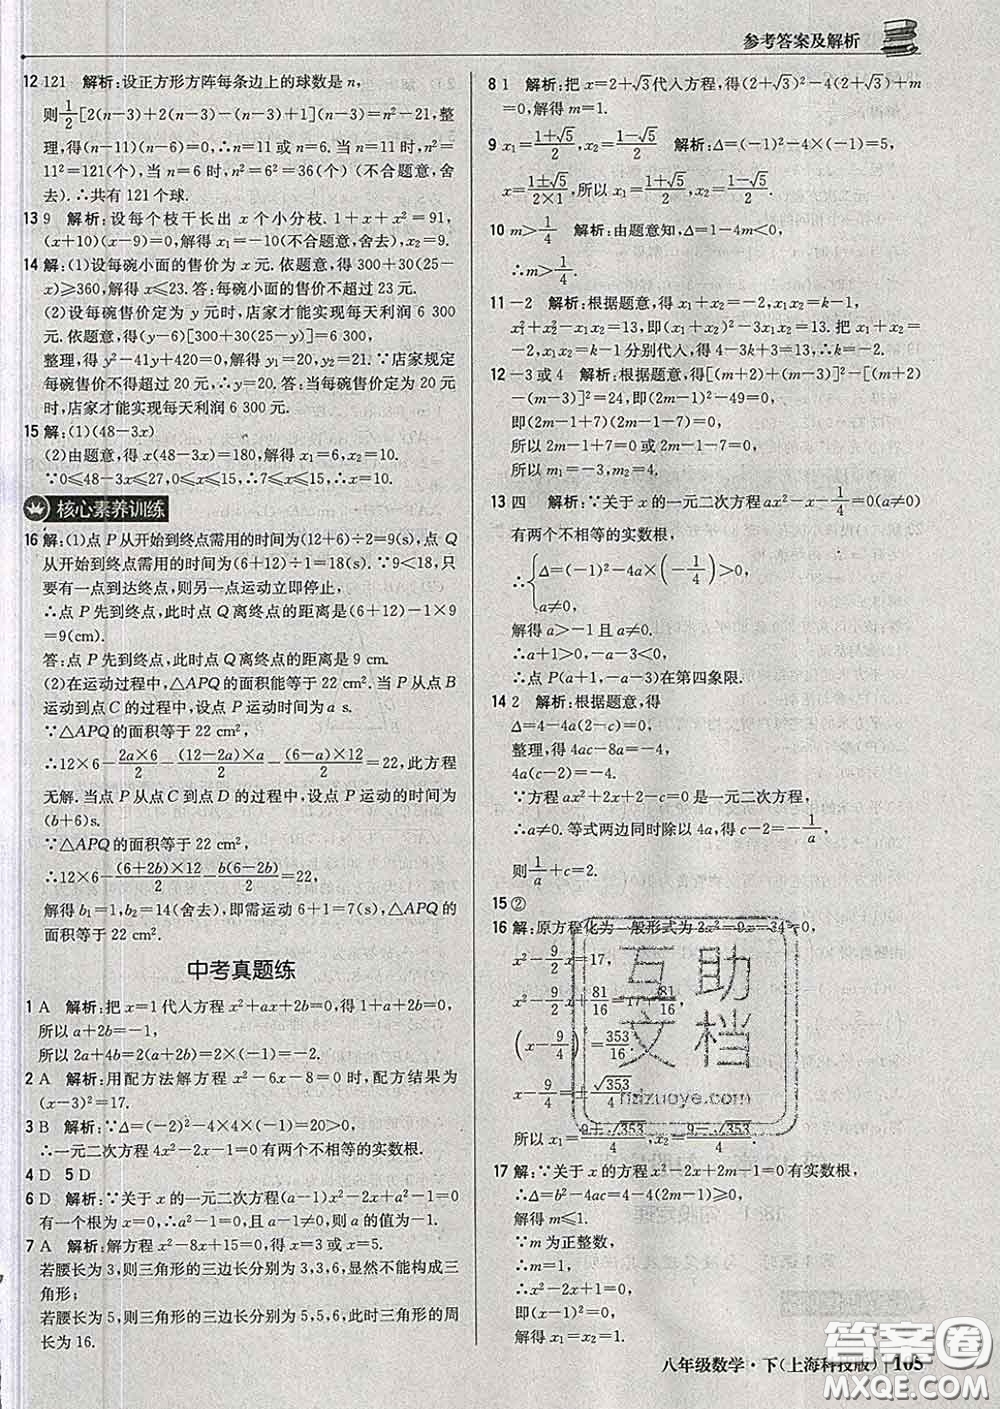 参考答案及解析
12 121 解析:设正方形方阵每条边上的球数是 n,
则1/2[2(n-3)+2(n-3-1)+(n-3-1)(n-3)+1](n-3)=n²-21,整
理,得(n-11)(n-6)=0,∴n=11或 n=6. 当 n=11 时,n²=
11²=121(个),当 n=6 时,n²=6²=36(个)(不合题意,
舍去).∴共有 121 个球.
13 9 解析:设每个枝干长出 x 个小分枝. 1+x+x²=91,
(x+10)(x-9)=0,解得 x₁=-10(不合题意,舍去),x₂=9.
14 解:(1)设每碗小面的售价为 x 元. 依题意,得 300+30(25-
x)⩾360,解得 x⩽23. 答:每碗小面的售价不超过 23 元.
(2)设每碗售价定为 y 元时,店家才能实现每天利润 6 300
元. 依题意,得(y-6)[300+30(25-y)]=6 300,
整理,得 y²-41y+420=0,解得 y₁=20,y₂=21. ∵店家规定
每碗售价不得超过 20 元,∴y=20. 答:当每碗售价定为 20 元时,
店家才能实现每天利润 6 300 元.
15 解:(1)(48-3x)
(2)由题意,得 x(48-3x)=180,解得 x₁=6,x₂=10.
∵0⩽48-3x⩽27,0⩽x⩽15,∴7⩽x⩽15,∴x=10.
核心素养训练
16 解:(1)点 P 从开始到终点需用的时间为(12+6)÷2=9(s),点 Q
从开始到终点需用的时间为(6+12)÷1=18(s). ∵9<18,只
要有一点到达终点,则另一点运动立即停止,
∴点 P 先到终点,此时点 Q 离终点的距离是(6+12)-1×9
=9(cm).
答:点 P 先到终点,此时点 Q 离终点的距离是 9 cm.
(2)在运动过程中,△APQ 的面积能等于 22 cm². 当 P 从点 B
运动到点 C 的过程中,设点 P 运动时间为 a s.
∵△APQ 的面积等于 22 cm²,
∴12×6-2a×6/2-(12-2a)×a/2-(6-a)×12/2=22,此方程
无解. 当点 P 从点 C 到点 D 的过程中,设点 P 运动的时间为
(b+6)s.
∵△APQ 的面积等于 22 cm²,
∴12×6-(6+2b)×12/2-b(6-2b)/2=22,
解得 b₁=1,b₂=14(舍去),即需运动 6+1=7(s),△APQ 的
面积等于 22 cm².
中考真题练
1 A 解析:把 x=1 代人方程 x²+ax+2b=0,得 1+a+2b=0,
所以 a+2b=-1,
所以 2a+4b=2(a+2b)=2×(-1)=-2.
2 A 解析:用配方法解方程 x²-6x-8=0 时,配方结果为
(x-3)²=17.
3 B 解析:∵Δ=(-2)²-4×4×(-1)=20>0,
∴一元二次方程 4x²-2x-1=0 有两个不相等的实数根.
4 D 5 D
6 D 解析:∵关于 x 的一元二次方程(a-1)x²-2x+a²-1=0
有一个根为 x=0,∴a²-1=0,a-1≠0,则 a 的值为-1.
7 A 解析:解方程 x²-8x+15=0,得 x=3 或 x=5.
若腰长为 3,则三角形的三边长分别为 3,3,6,显然不能构成三
角形;
若腰长为 5,则三角形的三边长分别为 5,5,6,此时三角形的周
长为 16.
8 1 解析:把 x=2+√3代人方程,得(2+√3)²-4(2+√3)+m
=0,解得 m=1.
9 x₁=(1+√5)/2,x₂=(1-√5)/2 解析:Δ=(-1)²-4×(-1)=5,
x=(1±√5)/(2×1),所以 x₁=(1+√5)/2,x₂=(1-√5)/2.
10 m>1/4 解析:由题意知,Δ=1-4m<0,
∴m>1/4.
11 -2 解析:根据题意,得 x₁+x₂=-2,x₁x₂=k-1,
x₁²+x₂²-x₁x₂=13,即(x₁+x₂)²-3x₁x₂=13. 把 x₁+x₂=
-2,x₁x₂=k-1分别代人,得 4-3(k-1)=13,∴k=-2.
12 -3 或 4 解析:根据题意,得[(m+2)+(m-3)]²-[(m+
2)-(m-3)]²=24,即(2m-1)²-49=0,
即(2m-1+7)(2m-1-7)=0,
所以 2m-1+7=0 或 2m-1-7=0,
所以 m₁=-3,m₂=4.
13 四 解析:∵关于 x 的一元二次方程 ax²-x-1/4=0(a≠0)
有两个不相等的实数根,
∴{Δ=(-1)²-4a×(-1/4)>0,
a≠0,
解得 a>-1 且 a≠0.
∴a+1>0,-a-3<0,
∴点 P(a+1,-a-3)在第四象限.
14 2 解析:根据题意,得
Δ=4-4a(2-c)=0,
整理,得 4ac-8a=-4,
4a(c-2)=-4.
∵方程 ax²+2x+2-c=0 是一元二次方程,
∴a≠0. 等式两边同时除以 4a,得 c-2=-1/a,
则1/a+c=2.
15 ②
16 解:原方程化为一般形式为 2x²-9x-34=0,
x²-9/2x=17,
x²-9/2x+81/16=17+81/16,
(x-9/4)²=353/16,
x-9/4=±√353/4,
所以 x₁=(9+√353)/4,x₂=(9-√353)/4.
17 解:∵关于 x 的方程 x²-2x+2m-1=0 有实数根,
∴Δ=b²-4ac=4-4(2m-1)⩾0,
解得 m⩽1.
∵m 为正整数,
∴m=1,
∴x²-2x+1=0,
即(x-1)²=0,
解得 x₁=x₂=1.
互助
文档
hzizuoye.com
八年级数学·下(上海科技版) 105
答案圈
MXQE.COM